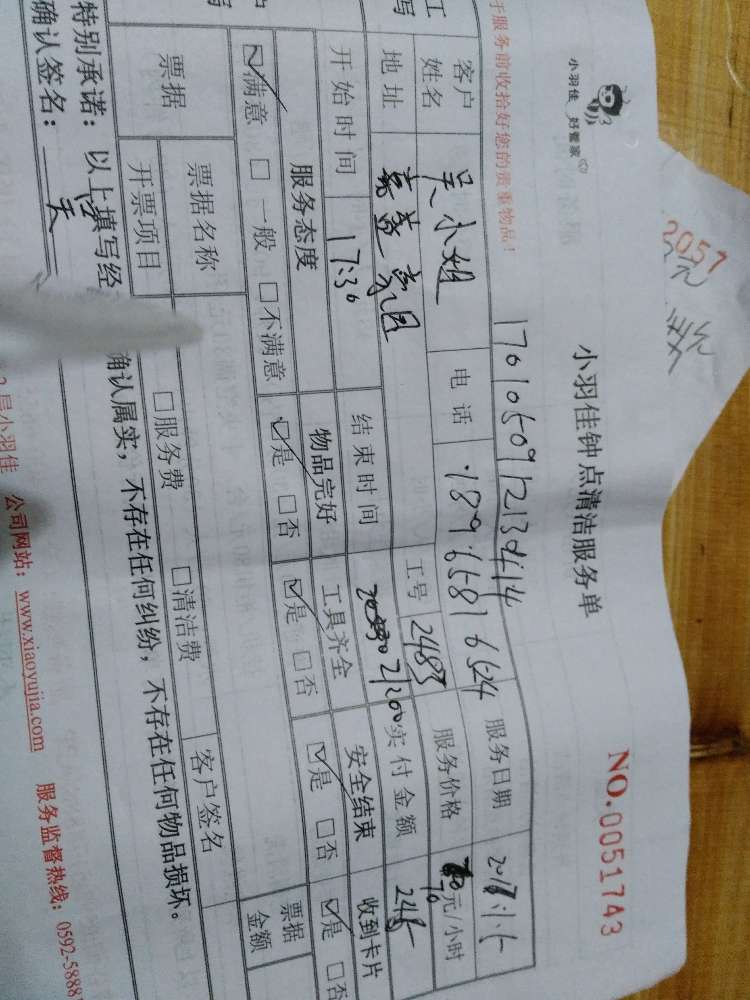 小羽佳 好管家
小羽佳钟点清洁服务单
NO.0051743
2057
于服务前收拾好您的贵重物品!
工
写
客户姓名 吴小姐 电话 189 6581 6524 服务日期
地址 工号 2483 服务价格 元/小时
开始时间 17:30 结束时间 21:00 实付金额 245
服务态度 物品完好 工具齐全 安全结束 收到卡片
☑满意 □一般 □不满意 ☑是 □否 ☑是 □否 ☑是 □否 ☑是 □否
票据 票据名称 □服务费 □清洁费 客户签名 票据金额
开票项目
特别承诺:以上填写经 确认属实,不存在任何纠纷,不存在任何物品损坏。
确认签名:
层小羽佳 公司网站:www.xiaoyujia.com 服务监督热线:0592-5888